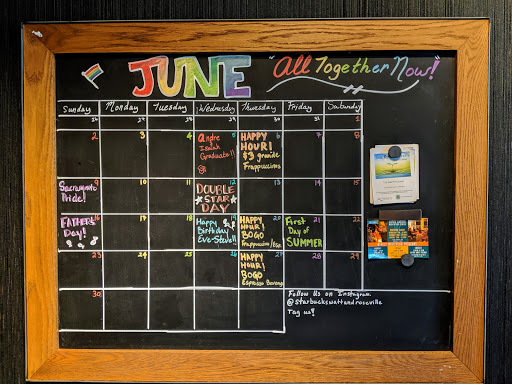 JUNE "All Together Now!"
Sunday Monday Tuesday Wednesday Thursday Friday Saturday
26 27 28 29 30 31 1
2 3 4 5 6 7 8
Andre
Isaiah
Graduate!!
HAPPY
HOUR!
$3 grande
Frappuccinos
9 10 11 12 13 14 15
Sacramento
Pride!
DOUBLE
STAR
DAY
16 17 18 19 20 21 22
FATHERS
Day!
Happy
Birthday
Eve-Steve!!
HAPPY
HOUR!
BOGO
First
Day of
SUMMER
23 24 25 26 27 28 29
HAPPY
HOUR!
BOGO
Espresso Beverage
30
Follow Us on Instagram
@starbuckswattandroseville
Tag us!